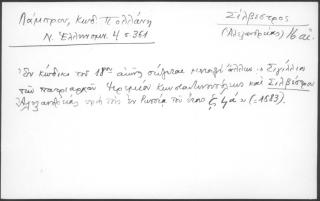 Λάμπρος, Κωδ. Πολλάνη
Ν. Ἑλληνομν. 4 σ 361
Σίλβεστρος
(Ἀλεξανδρείας) 16 αἰ.
Ἐν κώδικι τοῦ 18ου αἰῶνος σώζεται μεταξὺ ἄλλων
τῶν πατριαρχῶν Ἱερεμίου Κωνσταντινουπόλεως καὶ Σιλβέστρου
Ἀλεξανδρείας πρὸς τὸν ἐν Ῥωσσίᾳ τοῦ ἔτους (=1583).